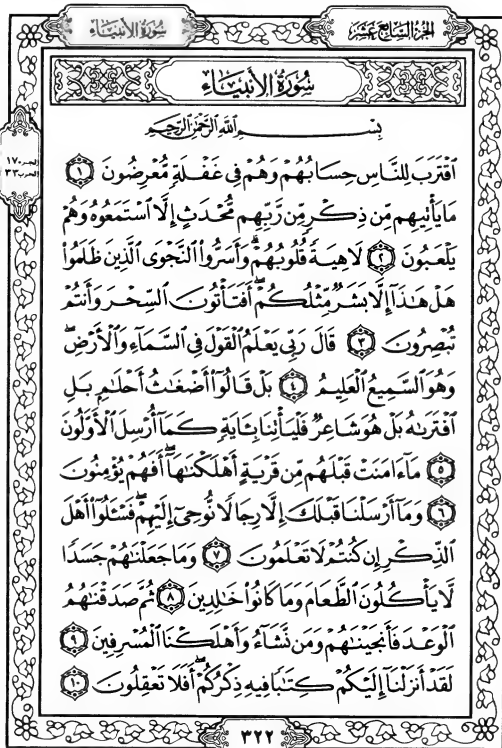 سُورَةُ الأَنبِيَاءِ
الجُزْءُ السَّابِعَ عَشَرَ
سُورَةُ الأَنبِيَاءِ
بِسْمِ اللَّهِ الرَّحْمَٰنِ الرَّحِيمِ
الجزء ١٧
الحزب ٣٣
ٱقْتَرَبَ لِلنَّاسِ حِسَابُهُمْ وَهُمْ فِى غَفْلَةٍ مُّعْرِضُونَ ١
مَا يَأْتِيهِم مِّن ذِكْرٍ مِّن رَّبِّهِم مُّحْدَثٍ إِلَّا ٱسْتَمَعُوهُ وَهُمْ
يَلْعَبُونَ ٢ لَاهِيَةً قُلُوبُهُمْ ۗ وَأَسَرُّوا۟ ٱلنَّجْوَى ٱلَّذِينَ ظَلَمُوا۟
هَلْ هَٰذَآ إِلَّا بَشَرٌ مِّثْلُكُمْ ۖ أَفَتَأْتُونَ ٱلسِّحْرَ وَأَنتُمْ
تُبْصِرُونَ ٣ قَالَ رَبِّى يَعْلَمُ ٱلْقَوْلَ فِى ٱلسَّمَآءِ وَٱلْأَرْضِ ۖ
وَهُوَ ٱلسَّمِيعُ ٱلْعَلِيمُ ٤ بَلْ قَالُوٓا۟ أَضْغَٰثُ أَحْلَٰمٍ بَلِ
ٱفْتَرَىٰهُ بَلْ هُوَ شَاعِرٌ فَلْيَأْتِنَا بِـَٔايَةٍ كَمَآ أُرْسِلَ ٱلْأَوَّلُونَ
٥ مَآ ءَامَنَتْ قَبْلَهُم مِّن قَرْيَةٍ أَهْلَكْنَٰهَآ ۖ أَفَهُمْ يُؤْمِنُونَ
٦ وَمَآ أَرْسَلْنَا قَبْلَكَ إِلَّا رِجَالًا نُّوحِىٓ إِلَيْهِمْ ۖ فَسْـَٔلُوٓا۟ أَهْلَ
ٱلذِّكْرِ إِن كُنتُمْ لَا تَعْلَمُونَ ٧ وَمَا جَعَلْنَٰهُمْ جَسَدًا
لَّا يَأْكُلُونَ ٱلطَّعَامَ وَمَا كَانُوا۟ خَٰلِدِينَ ٨ ثُمَّ صَدَقْنَٰهُمُ
ٱلْوَعْدَ فَأَنجَيْنَٰهُمْ وَمَن نَّشَآءُ وَأَهْلَكْنَا ٱلْمُسْرِفِينَ ٩
لَقَدْ أَنزَلْنَآ إِلَيْكُمْ كِتَٰبًا فِيهِ ذِكْرُكُمْ ۖ أَفَلَا تَعْقِلُونَ ١٠
٣٢٢